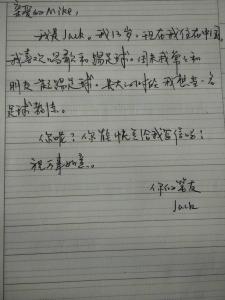 亲爱的Mike,
我是Jack。我13岁,现在我住在中国。
我喜欢唱歌和踢足球。周末我常和
朋友一起踢足球。长大的时候我想当一名
足球教练。
你呢?你能快点给我写信吗?
祝万事如意。
你的笔友
Jack